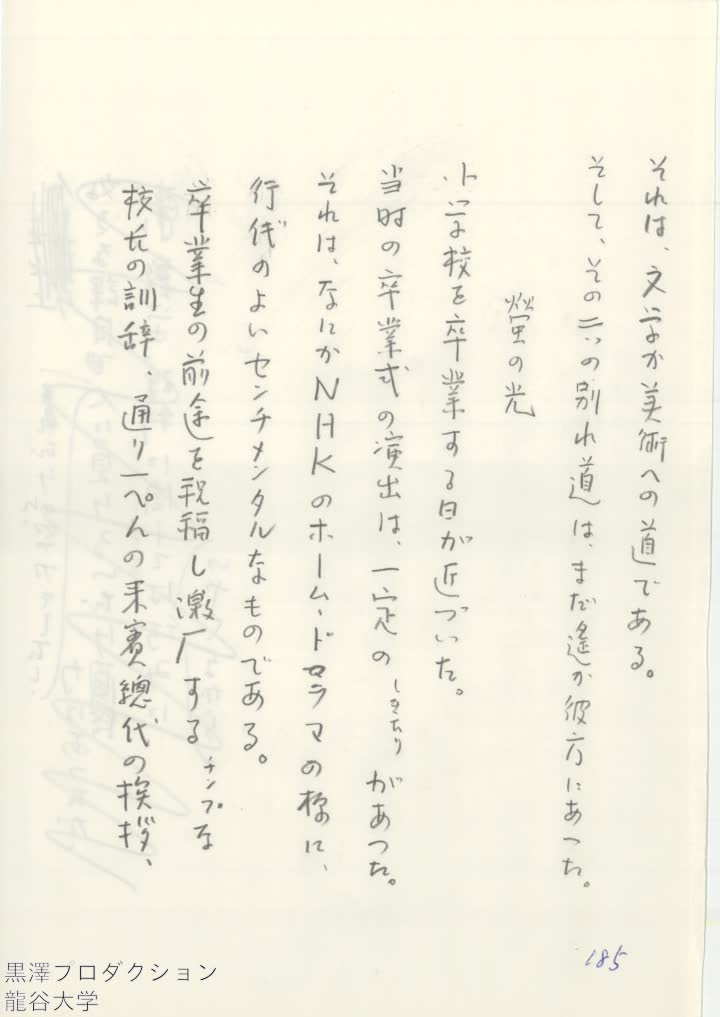 それは、文学か美術への道である。
そして、その二つの別れ道は、まだ遙か彼方にあった。
螢の光
小学校を卒業する日が近づいた。
当時の卒業式の演出は、一定のしきたりがあった。
それは、なにかNHKのホーム・ドラマの様に、
行儀のよいセンチメンタルなものである。
卒業生の前途を祝福し激励するチンプな
校長の訓辞、通り一ぺんの来賓總代の挨拶、
185
黒澤プロダクション
龍谷大学